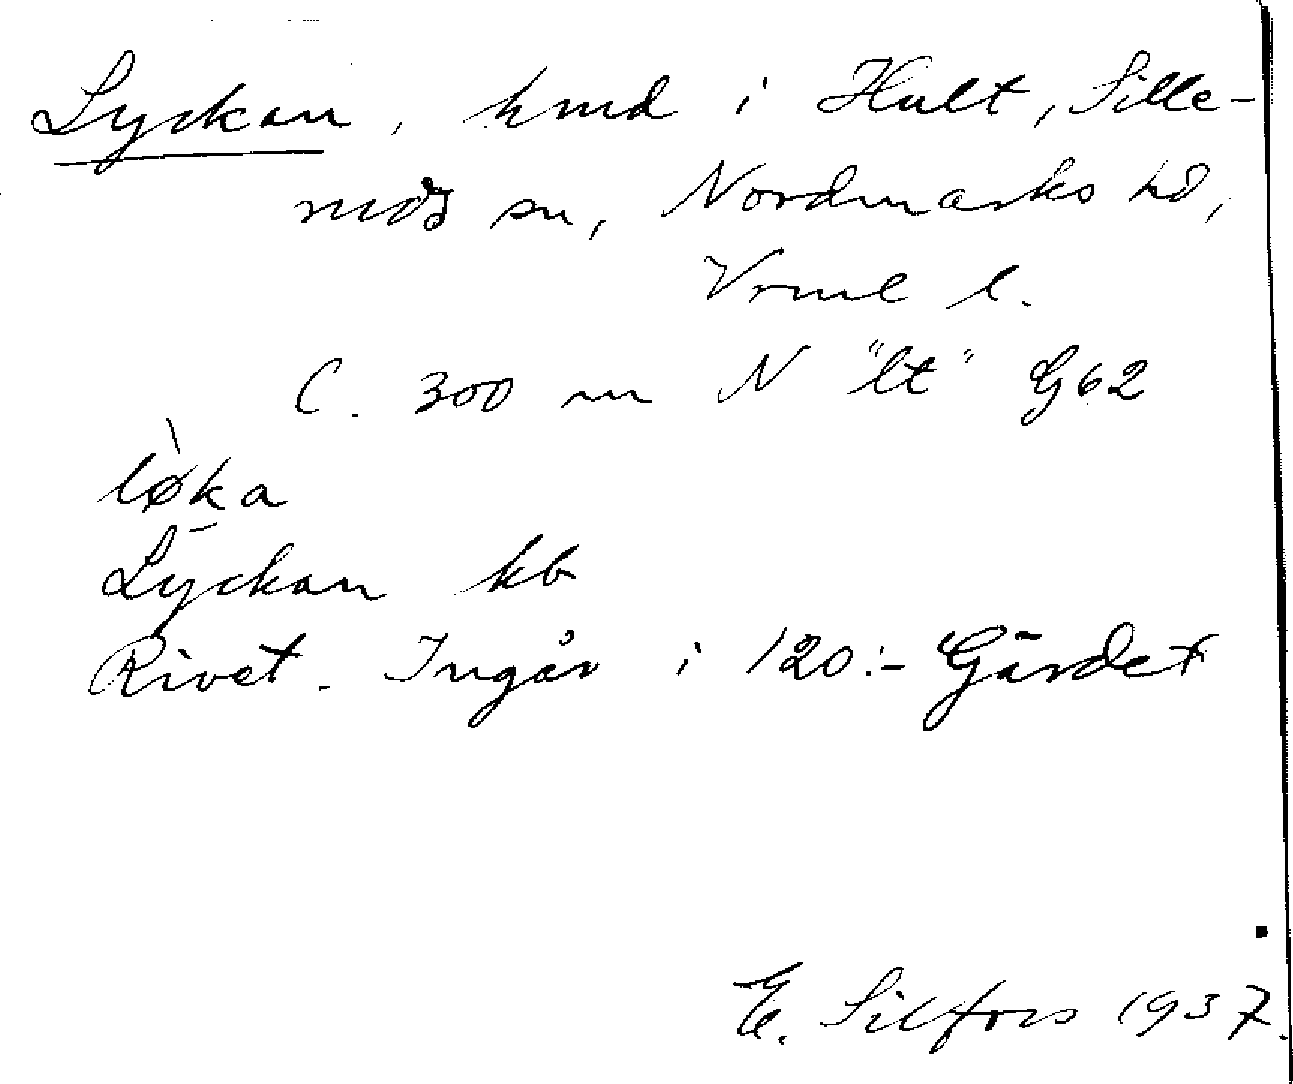 Lyckan, hmd i Hult, Sille-
rud sn, Nordmarks hd,
Vrml l.
C. 300 m N "lt" G62
lø̀ka
Lyckan kb
Rivet. Ingår i 120:- Gärdet
E. Silfors 1937.